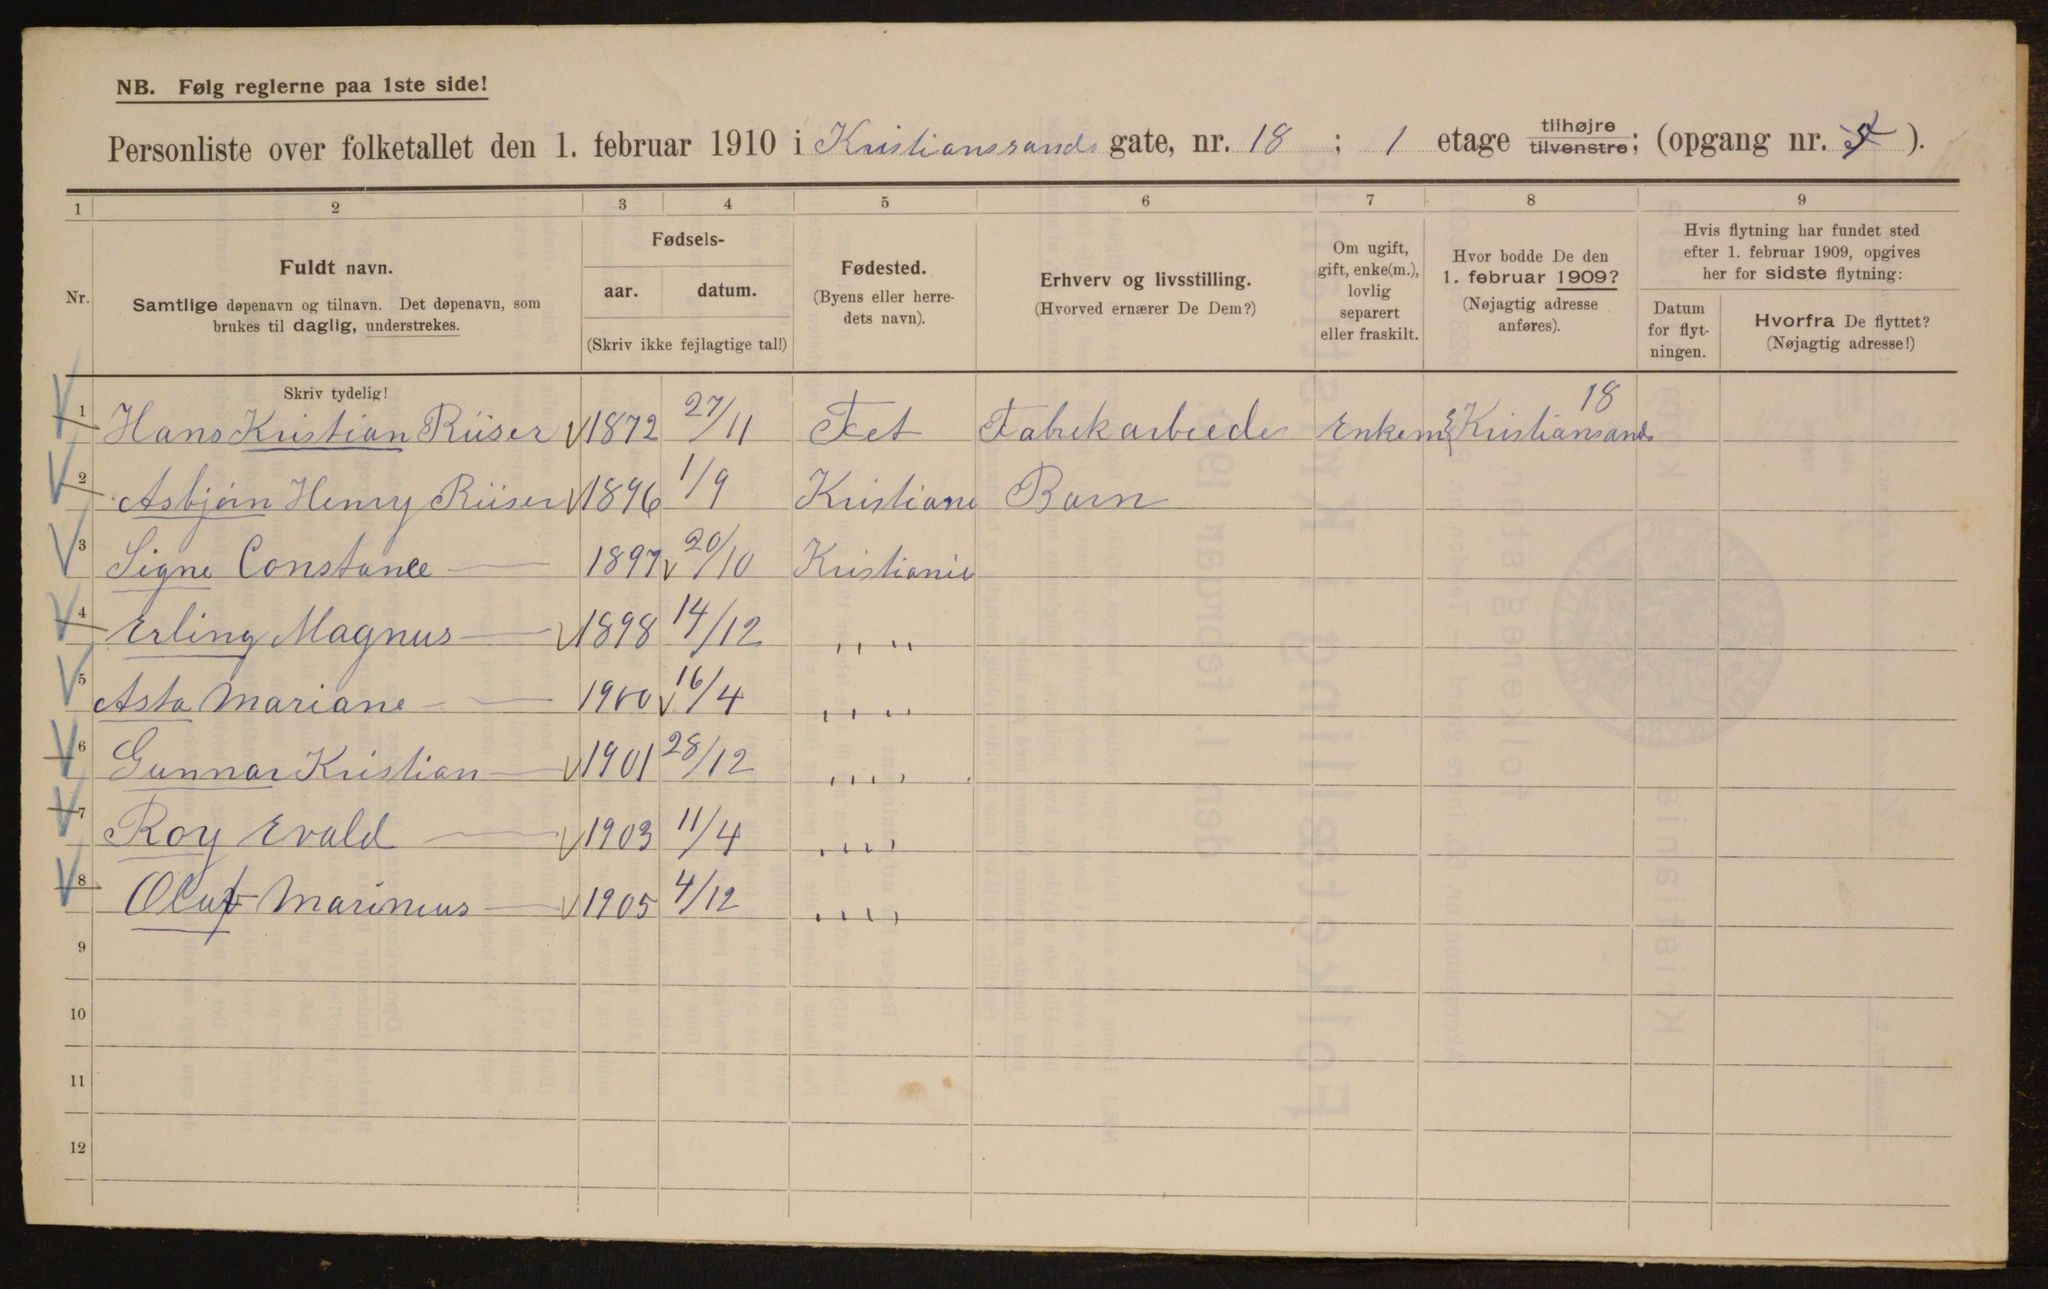 NB. Følg reglerne paa 1ste side!
Personliste over folketallet den 1. februar 1910 i Kristianssands gate, nr. 18 ; 1 etage tilhøjre tilvenstre; (opgang nr. ).
1 2 3 4 5 6 7 8 9
Nr.
Fuldt navn.
Samtlige døpenavn og tilnavn. Det døpenavn, som
brukes til daglig, understrekes.
Fødsels-
aar. datum.
(Skriv ikke fejlagtige tal!)
Fødested.
(Byens eller herre-
dets navn).
Erhverv og livsstilling.
(Hvorved ernærer De Dem?)
Om ugift,
gift, enke(m.),
lovlig
separert
eller fraskilt.
Hvor bodde De den
1. februar 1909?
(Nøjagtig adresse
anføres).
Hvis flytning har fundet sted
efter 1. februar 1909, opgives
her for sidste flytning:
Datum
for flyt-
ningen.
Hvorfra De flyttet?
(Nøjagtig adresse!)
Skriv tydelig!
1 Hans Kristian Riiser 1872 27/11 Fet Fabrekarbeede Enkem Kristiansands 18
2 Asbjørn Henry Riiser 1896 1/9 Kristiane Barn
3 Signe Constance — 1897 20/10 Kristianie
4 Erling Magnus — 1898 14/12 ,, ,,
5 Asta Mariane — 1900 16/4 ,, ,,
6 Gunnar Kristian — 1901 28/12 ,, ,,
7 Roy Evald — 1903 11/4 ,, ,,
8 Oluf Marinius — 1905 4/12 ,, ,,
9
10
11
12